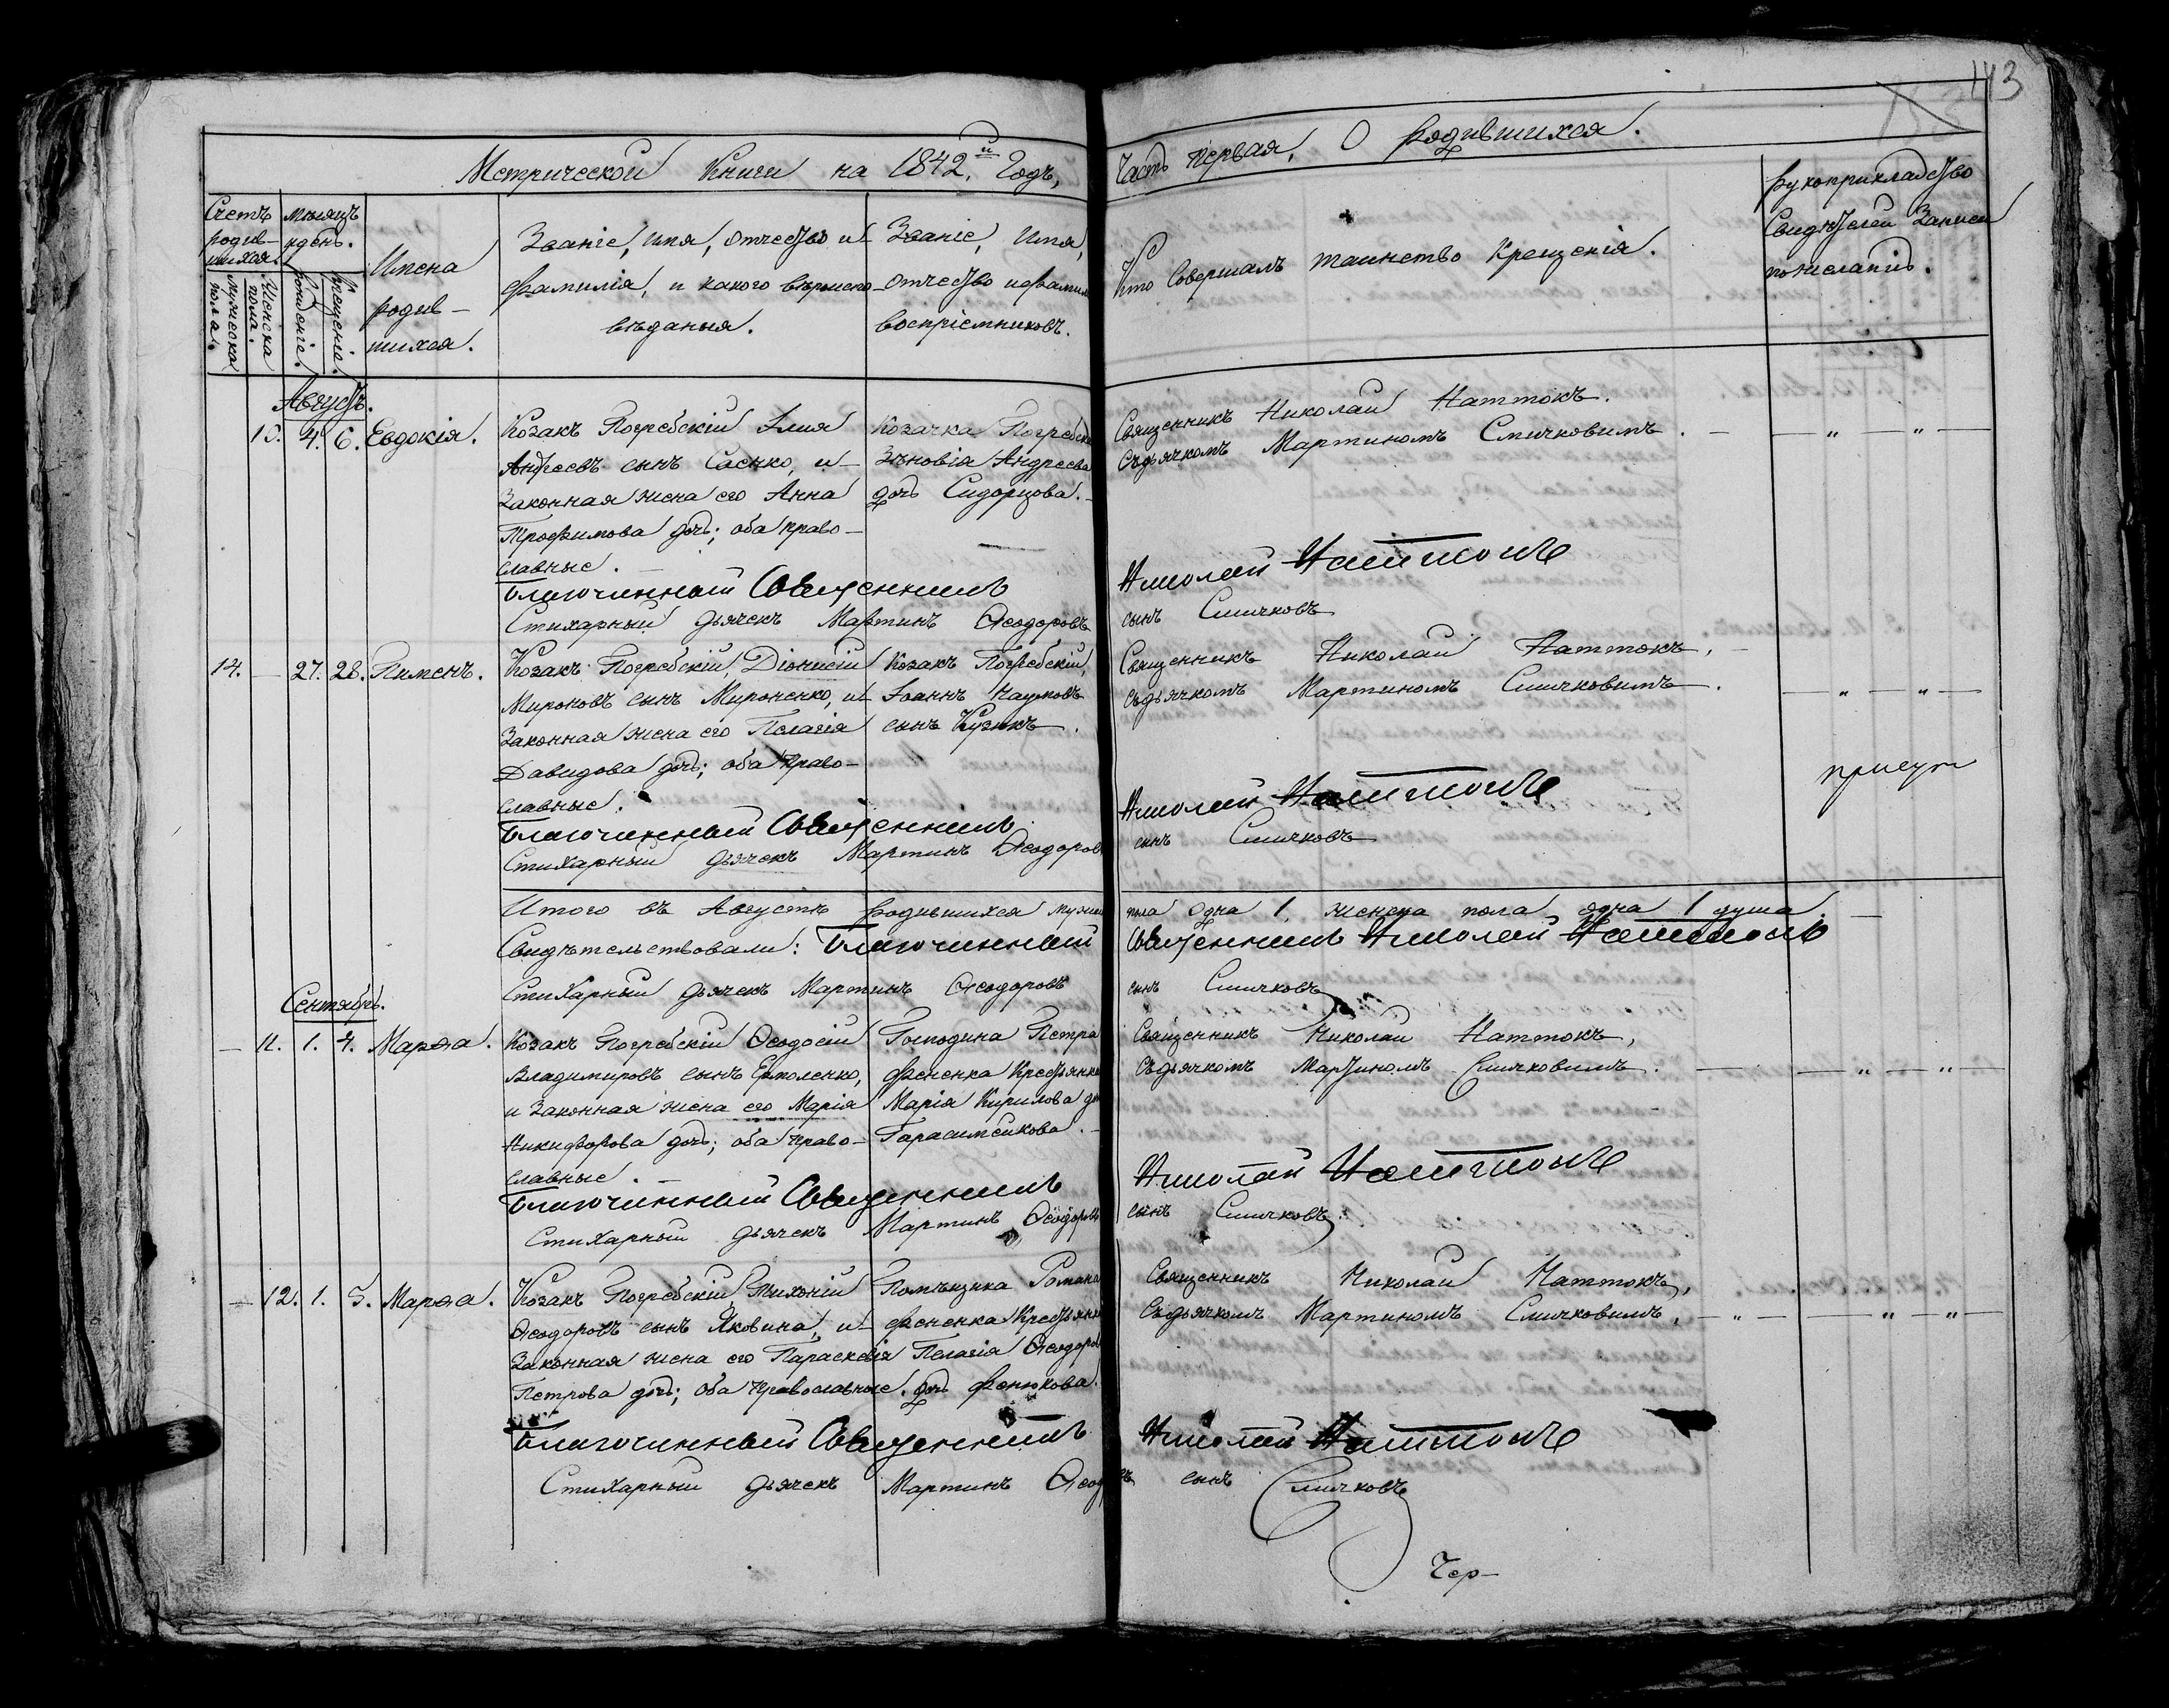 143
Метрической Книги на 1842.й Годъ,
Часть первая, О родившихся.
Счетъ родив-шихся.
Мѣсяцъ и день.
мужеска пола.
Женска пола.
рожденіе.
крещеніе.
Имена
родив-
шихся.
Званіе, имя, отчество и
фамилія, и какого вѣроиспо-
вѣданія.
Званіе, имя,
отчество и фамилія
воспріемниковъ.
Кто Совершалъ таинство Крещенія.
Рукоприкладство
Свидѣтелей Записи
по желанію.
Августъ.
10. 4. 6. Евдокія.
Козакъ Погребскій Илия
Андреевъ сынъ Сасько, и
Законная жена его Анна
Трофимова дочь; оба право-
славные.
Козачка Погребска
Зѣновія Андреева
дочь Сидорцова.
Священникъ Николай Наттокъ.
Съ дьячкомъ Мартиномъ Смичковимъ.
Благочинный Священникъ Николай Наттокъ
Стихарный дьячекъ Мартинъ Ѳеодоровъ сынъ Смичковъ
14. — 27. 28. Пименъ.
Козакъ Погребскій, Діонисій
Мироновъ сынъ Мироненко, и
Законная жена его Пелагія
Давидова дочь; оба право-
славные.
Козакъ Погребскій,
Іоаннъ Наумовъ
сынъ Кузикъ.
Священникъ Николай Наттокъ,
съ дьячкомъ Мартиномъ Смичковимъ.
Благочинный Священникъ Николай Наттокъ
Стихарный дьячекъ Мартинъ Ѳеодоров сынъ Смичковъ
Итого въ Августѣ родившихся мужеска пола одна 1. женска пола одна 1 душа.
Свидѣтельствовали: Благочинный Священникъ Николай Наттокъ
Стихарный дьячекъ Мартинъ Ѳеодоровъ сынъ Смичковъ
Сентябрь.
— 11. 1. 4. Марѳа.
Козакъ Погребскій Ѳеодосій
Владимировъ сынъ Ермоленко,
и Законная жена его Марія
Никифорова дочь; оба право-
славные.
Господина Петра
Фененка Крестьянка
Марія Кирилова до
Гарасимсикова.
Священникъ Николай Наттокъ,
Съ дьячкомъ Мартиномъ Смичковимъ.
Благочинный Священникъ Николай Наттокъ
Стихарный дьячекъ Мартинъ Ѳеодоровъ сынъ Смичковъ
— 12. 1. 5. Марѳа.
Козакъ Погребскій, Тихоній
Ѳеодоровъ сынъ Яковина, и
Законная жена его Параскевія
Петрова дочь; оба Православные.
Помѣщика Романа
Фененка Крестьянка
Пелагія Ѳеодоров
дочь Фенюкова.
Священникъ Николай Наттокъ,
Съ дьячкомъ Мартиномъ Смичковимъ.
Благочинный Священникъ Николай Наттокъ
Стихарный дьячекъ Мартинъ Ѳеодоровъ сынъ Смичковъ
Чер-